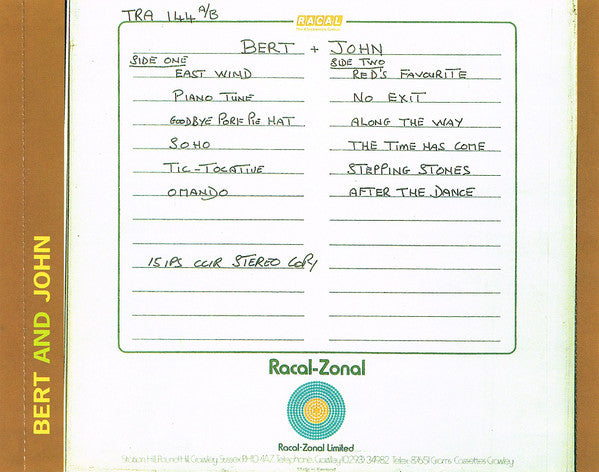 TRA 144 A/B
RACAL
BERT + JOHN
SIDE ONE
EAST WIND
PIANO TUNE
GOODBYE PORK PIE HAT
SOHO
TIC-TOCATIVE
OMANDO
15 IPS CCIR STEREO COPY
SIDE TWO
RED'S FAVOURITE
NO EXIT
ALONG THE WAY
THE TIME HAS COME
STEPPING STONES
AFTER THE DANCE
Racal-Zonal
Racal-Zonal Limited
Telephone Crawley (0293) 34982 Telex 87651 Grams Cassettes Crawley
BERT AND JOHN